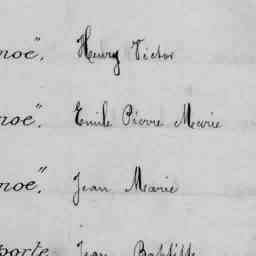 noe", Henry Victor
noe", Emile Pierre Marie
noe", Jean Marie
porte Jean Baptiste